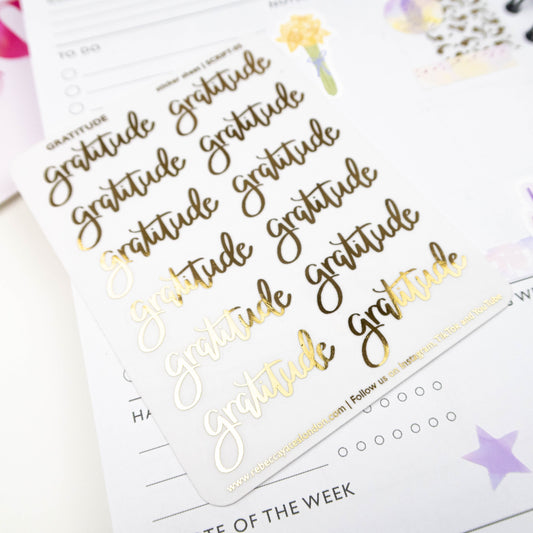 TO DO
GRATITUDE
sticker sheet |
gratitude gratitude
gratitude gratitude
gratitude gratitude
gratitude gratitude
gratitude gratitude
gratitude gratitude
| Follow us on Instagram, TikTok and YouTube
WEEK
HA
TE OF THE WEEK